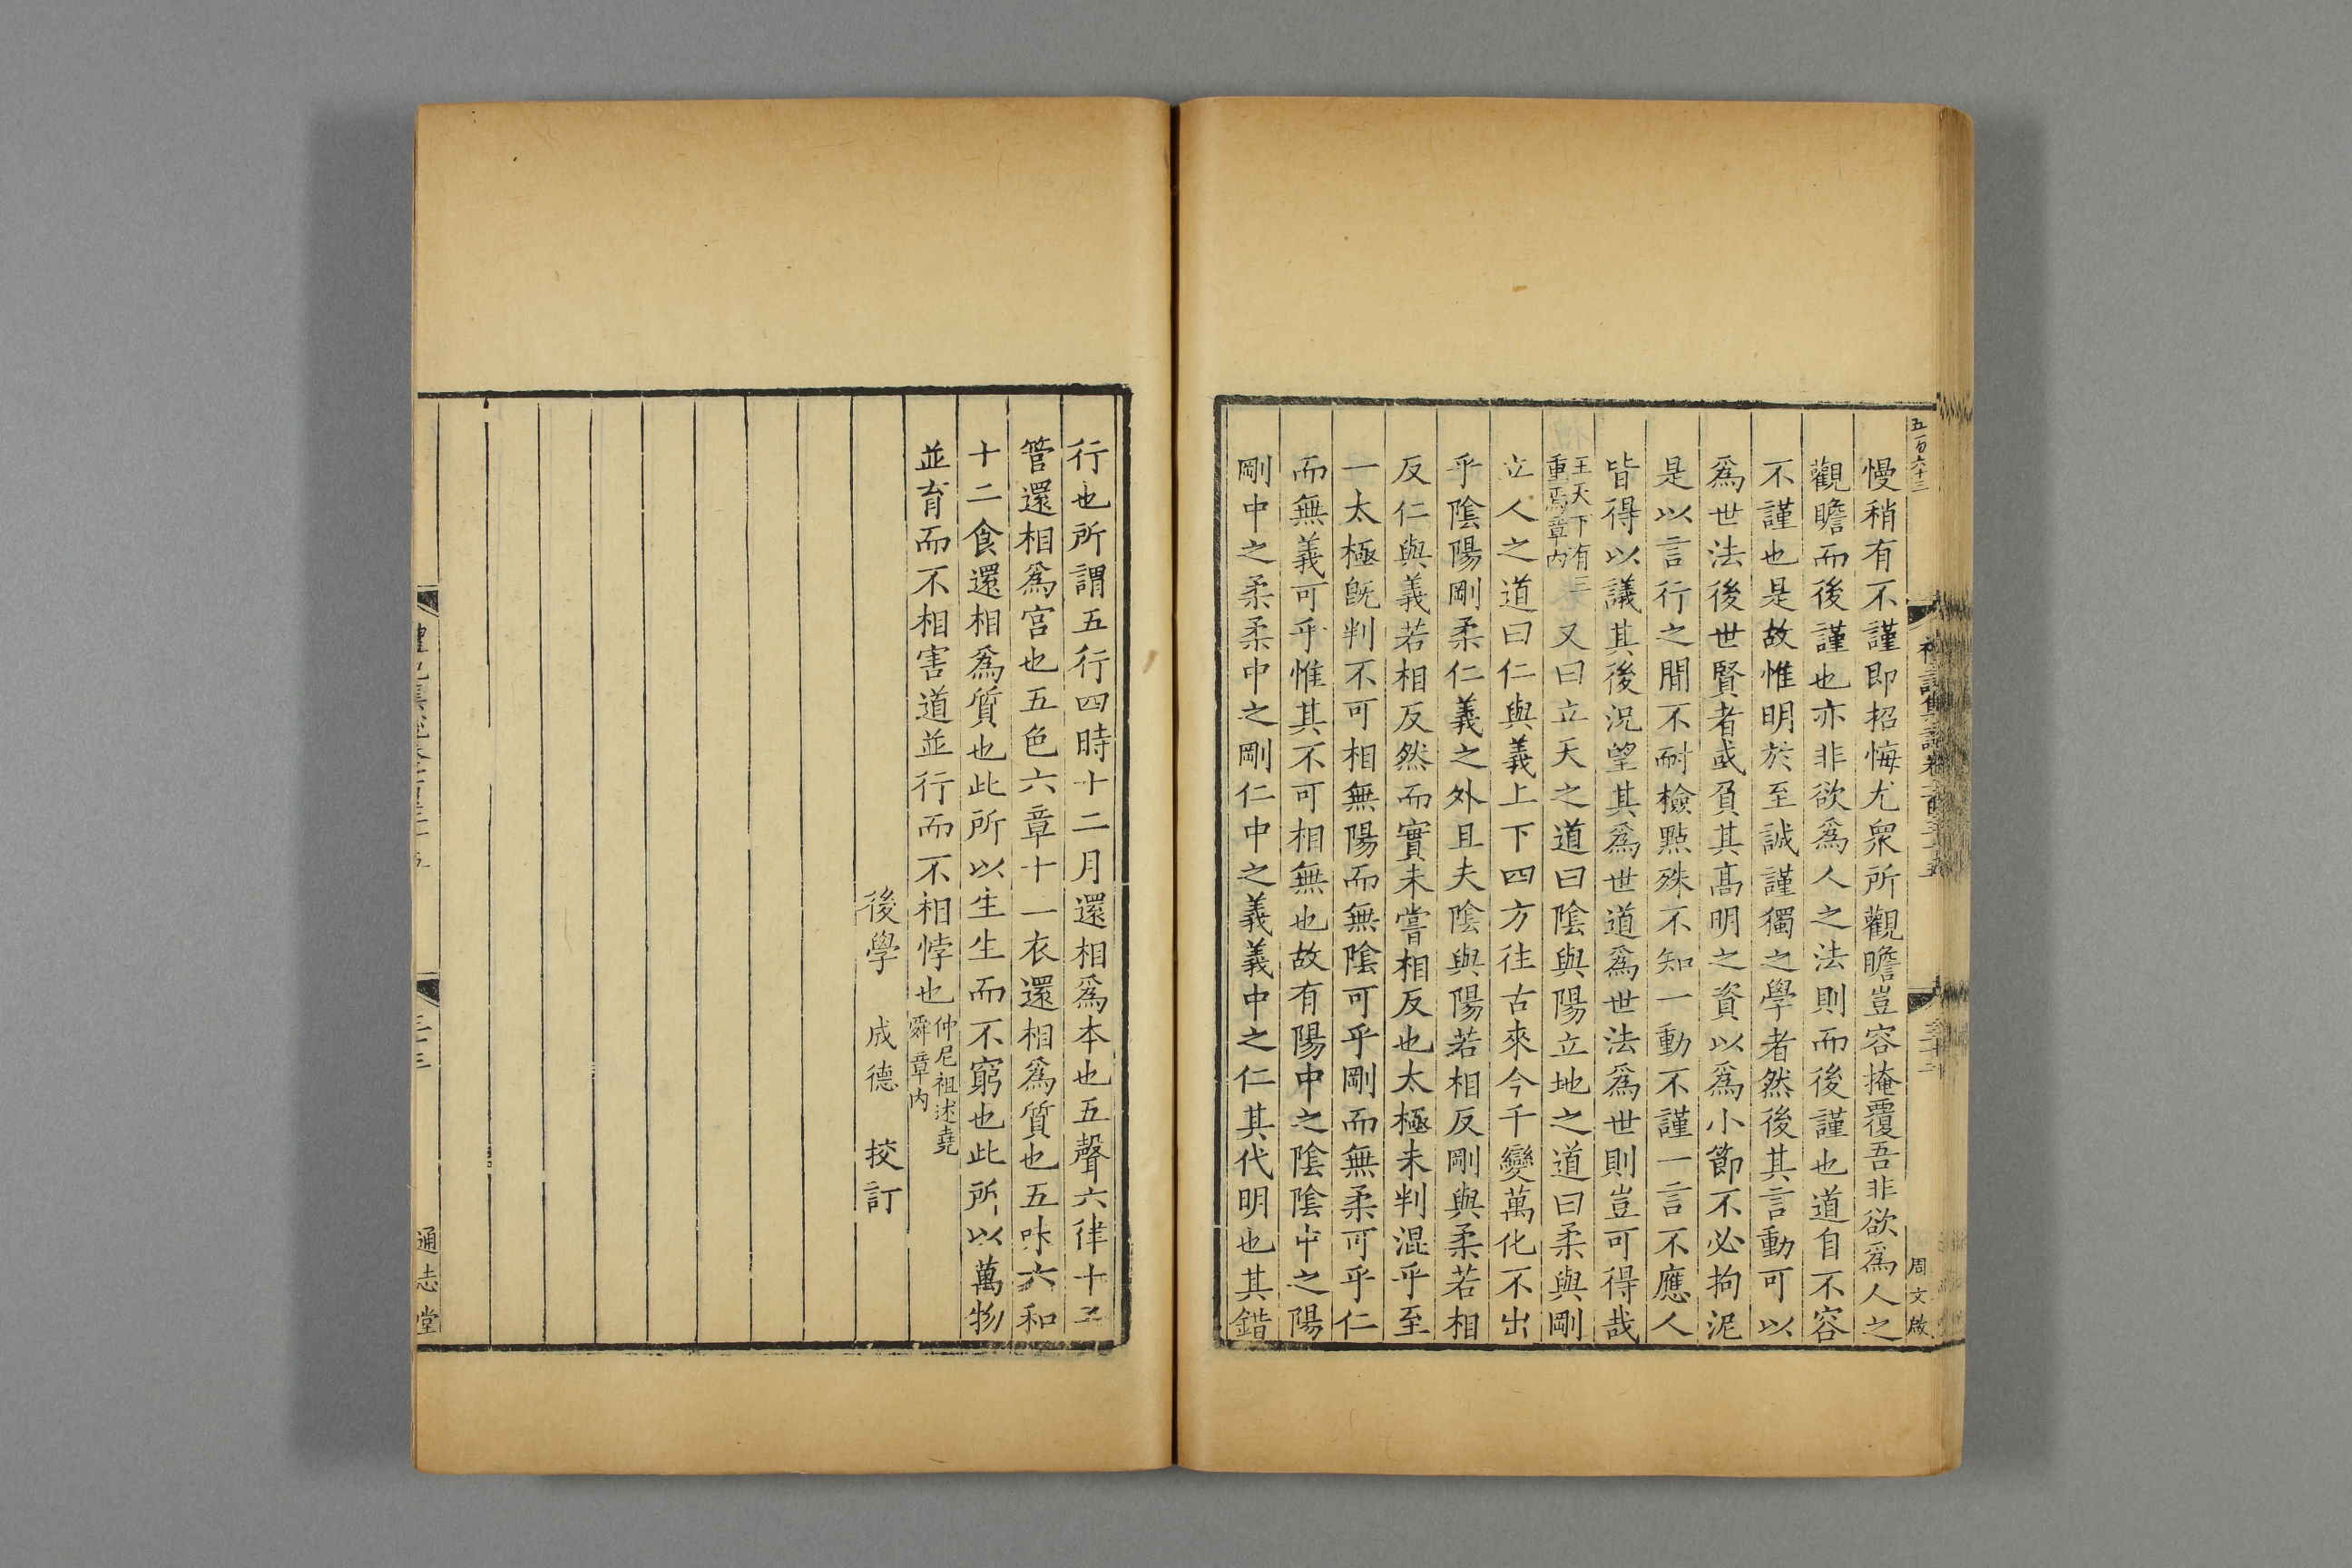 五百六十三
周文啟
慢稍有不謹即招悔尤衆所觀瞻豈容掩覆吾非欲爲人之
觀瞻而後謹也亦非欲爲人之法則而後謹也道自不容
不謹也是故惟明於至誠謹獨之學者然後其言動可以
爲世法後世賢者或負其髙明之資以爲小節不必拘泥
是以言行之閒不耐檢㸃殊不知一動不謹一言不應人
皆得以議其後況望其爲世道爲世法爲世則豈可得哉
王天下有三
重焉章内
又曰立天之道曰陰與陽立地之道曰柔與剛
立人之道曰仁與義上下四方往古來今千變萬化不出
乎陰陽剛柔仁義之外且夫陰與陽若相反剛與柔若相
反仁與義若相反然而實未嘗相反也太極未判混乎至
一太極旣判不可相無陽而無陰可乎剛而無柔可乎仁
而無義可乎惟其不可相無也故有陽中之陰陰中之陽
剛中之柔柔中之剛仁中之義義中之仁其代明也其錯
行也所謂五行四時十二月還相爲本也五聲六律十二
管還相爲宮也五色六章十一衣還相爲質也五味六和
十二食還相爲質也此所以生生而不窮也此所以萬物
並育而不相害道並行而不相悖也
仲尼祖述堯
舜章内
後學 成德 挍訂
通志堂